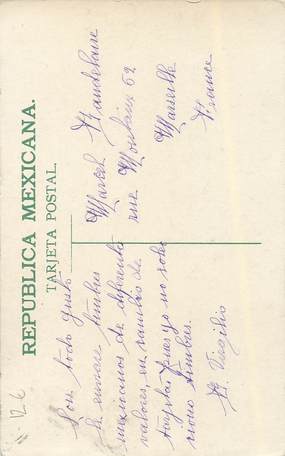 REPUBLICA MEXICANA.
TARJETA POSTAL.
Con todo gusto
le enviare timbres
mexicanos de diferente
valores, en cambio de
tarjetas pues yo no
uno timbres.
H. Virgilio
Marcel Handelaire
rue Moulain 62
Marseille
France
12-6